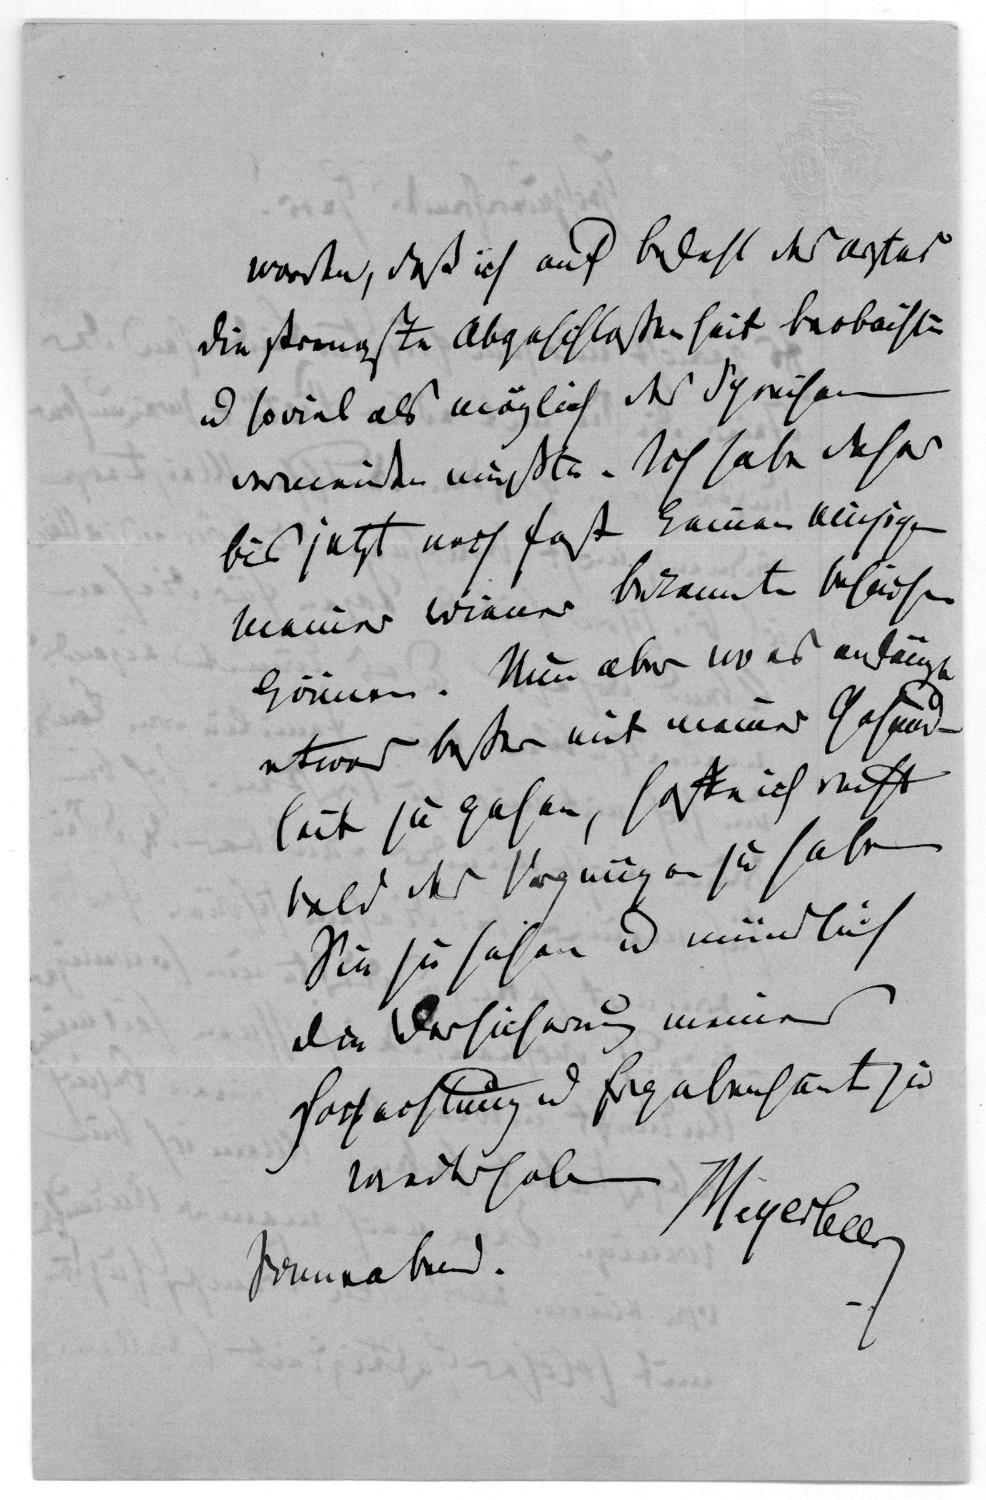 worden, daß ich auf befehl des arztes
die strengste Abgeschlossenheit beobachten
u soviel als möglich das Sprechen
vermeiden mußte. Ich habe daher
bis jetzt noch fast keinen einzigen
meiner wiener bekannten besuchen
können. Nun aber wo es anfängt
etwas besser mit meiner Gesund-
heit zu gehen, hoffe ich recht
bald das Vergnügen zu haben
Sie zu sehen u mündlich
die Versicherung meiner
Hochachtung u Ergebenheit zu
wiederholen
Meyerbeer
Sonnabend.